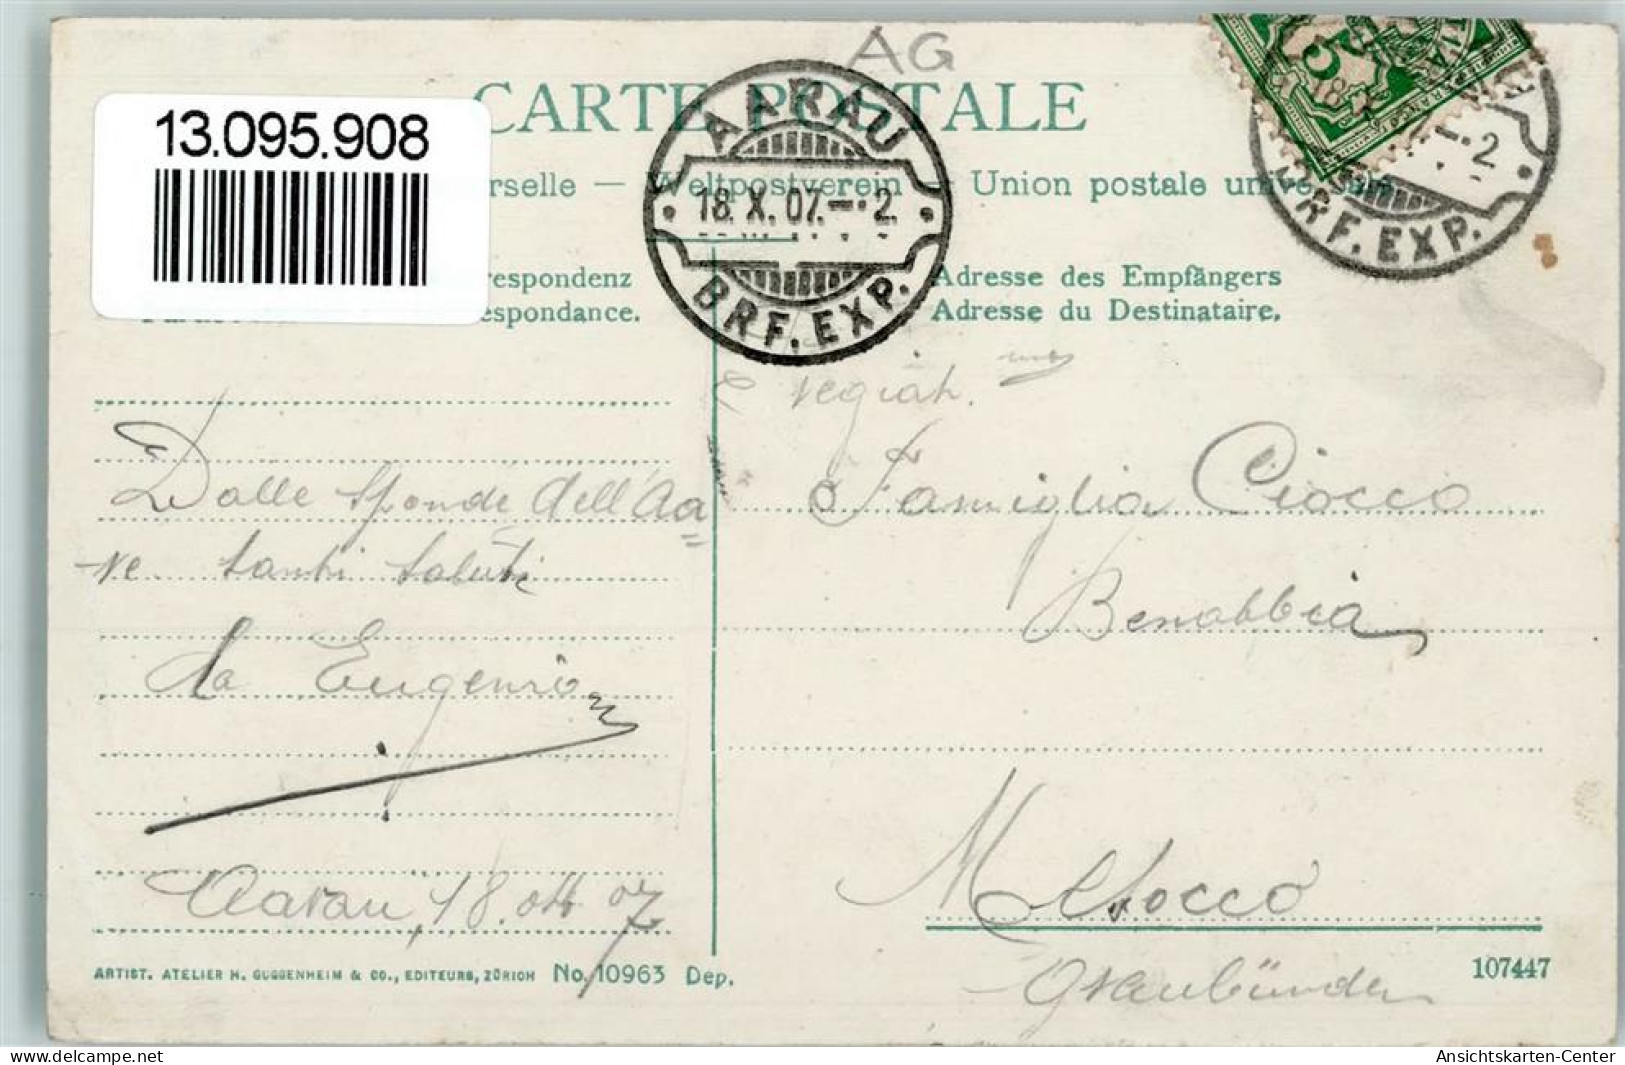 AG
CARTE POSTALE
13.095.908
rselle — Weltpostverein — Union postale universelle
AARAU
18. X. 07. — 2.
BRF. EXP.
2
BRF. EXP.
respondenz
espondance.
Adresse des Empfängers
Adresse du Destinataire.
Dalle sponde dell'Aa
re tanti saluti
da Eugenio
Aarau, 18. ott 07
Famiglia Ciocco
Benabbia
Mesocco
Graubünden
ARTIST. ATELIER H. GUGGENHEIM & CO., EDITEURS, ZÜRICH No. 10963 Dep.
107447
Ansichtskarten-Center
www.delcampe.net